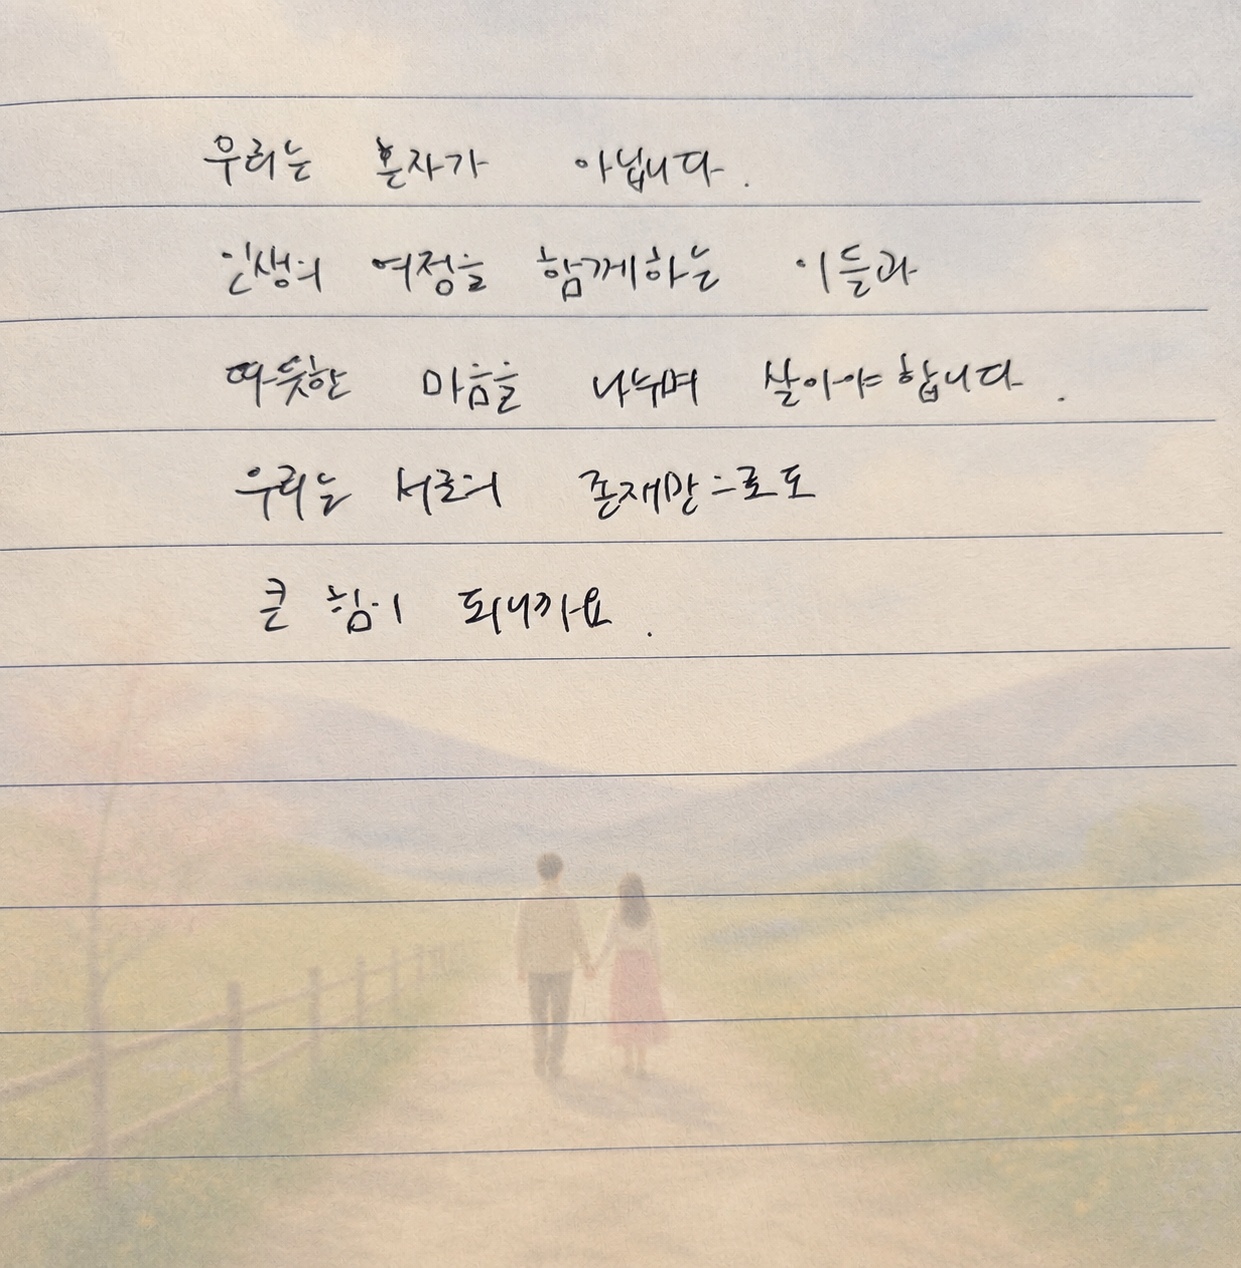 우리는 혼자가 아닙니다.
인생의 여정을 함께하는 이들과
따뜻한 마음을 나누며 살아야 합니다.
우리는 서로의 존재만으로도
큰 힘이 되니까요.